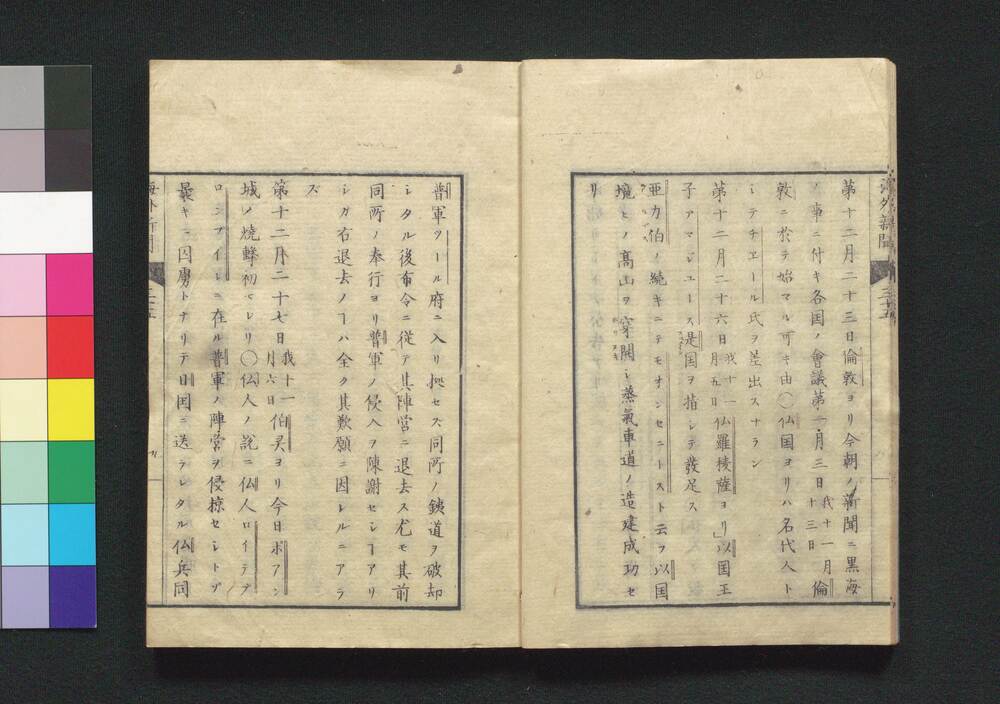 第十二月二十三日倫敦ヨリ今朝ノ新聞ニ黒海
ノ事ニ付キ各国ノ會議第一月三日我十一月十三日倫
敦ニ於テ始マル可キ由〇仏国ヨリハ名代人ト
シテチエール氏ヲ差出スナラン
第十二月二十六日我十一月五日仏羅稜薩ヨリ以国王
子アマジユース是国ヲ指シテ發足ス
亜力伯ノ続キニテモオンセニースト云フ以国
境ヒノ高山ヲ穿開シ蒸氣車道ノ造建成功セ
リ
海外新聞
普軍ツール府ニ入リ拠セス同所ノ鉄道ヲ破却
シタル後布令ニ従テ其陣営ニ退去ス尤モ其前
同所ノ奉行ヨリ普軍ノ侵入ヲ陳謝セシヿアリ
シガ右退去ノヿハ全ク其歎願ニ因レルニアラ
ズ
第十二月二十七日我十一月六日伯灵ヨリ今日ボアン
城ノ焼蜂初レリ〇仏人ノ説ニ仏人ロイテブ
ロンフイレニ在ル普軍ノ陣営ヲ侵掠セシトゾ
最キニ囚虜トナリテ日国ニ送ラレタル仏兵同
海外新聞